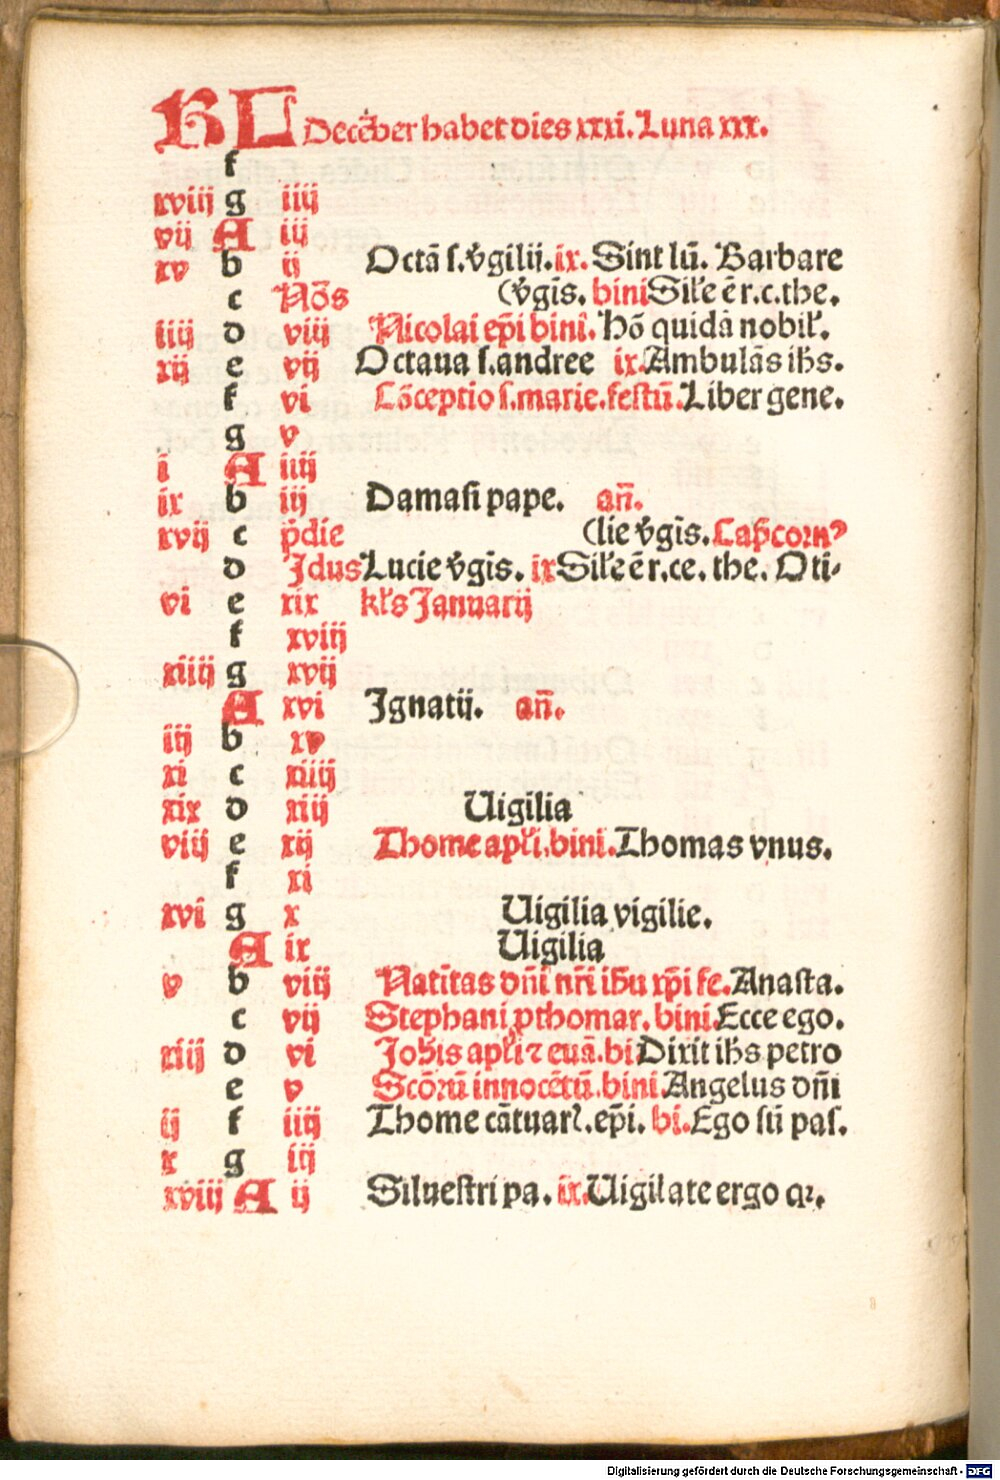 KL Decēber habet dies xxxi. Luna xxx.
f
xviij g iiij
vij A iij
xv b ij Octā s. v̄gilij. ix. Sint lū. Barbare
c Nōs (v̄gīs. bini Sil̄e ē r. c. the.
iiij d viij Nicolai ep̄i bini. Hō quidā nobil̄.
xij e vij Octaua s. andree ix Ambulās ih̄s.
f vi Cōceptio s. marie. festū. Liber gene.
g v
i A iiij
ix b iij Damasi pape. añ.
xvij c p̄die (lie v̄gīs. Cap̄cornꝰ
d Jdus Lucie v̄gīs. ix Sil̄e ē r. ce. the. Oti-
vi e xix kl̄s Januarij
f xviij
xiiij g xvij
A xvi Jgnatij. añ.
iij b xv
xi c xiiij
xix d xiij Uigilia
viij e xij Thome apl̄i. bini. Thomas vnus.
f xi
xvi g x Uigilia vigilie.
A ix Uigilia
v b viij Natītas dn̄i nr̄i ih̄u xp̄i fe. Anasta.
c vij Stephani ꝓthomar. bini. Ecce ego.
xiij d vi Joh̄is apl̄i ⁊ euā. bi Dixit ih̄s petro
e v Scōrū innocētū. bini. Angelus dn̄i
ij f iiij Thome cātuar̄. ep̄i. bi. Ego sū pas.
x g iij
xviij A ij Siluestri pa. ix. Uigilate ergo qꝛ.
Digitalisierung gefördert durch die Deutsche Forschungsgemeinschaft - DFG